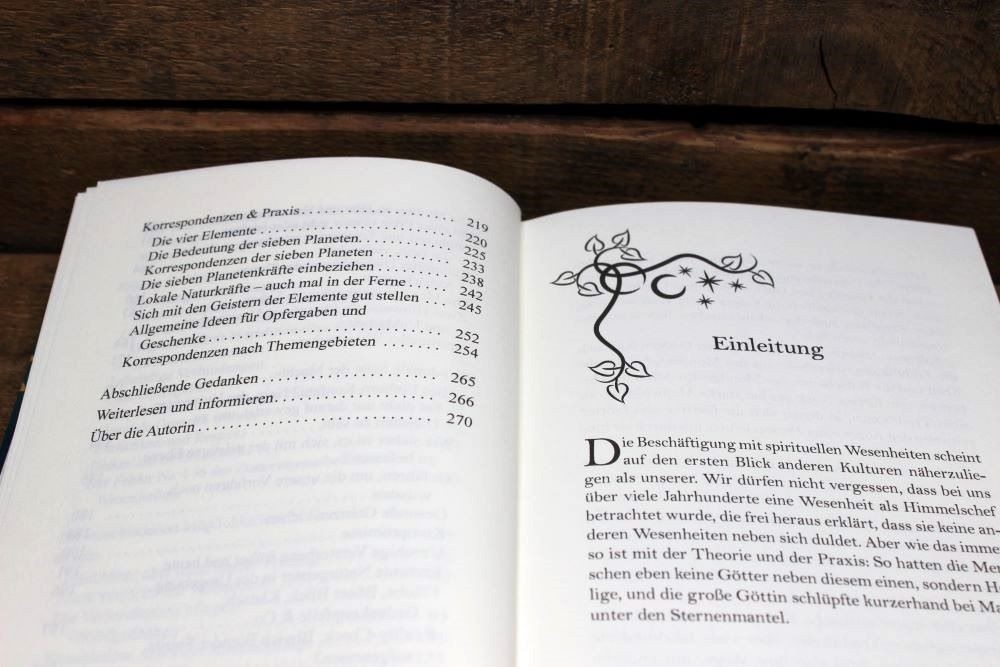 Korrespondenzen & Praxis . . . . . . . . . . . . . . . . . . . 219
Die vier Elemente . . . . . . . . . . . . . . . . . . . . . . . . 220
Die Bedeutung der sieben Planeten. . . . . . . . . . . . . 225
Korrespondenzen der sieben Planeten . . . . . . . . . . . 233
Die sieben Planetenkräfte einbeziehen . . . . . . . . . . 238
Lokale Naturkräfte – auch mal in der Ferne . . . . . . . 242
Sich mit den Geistern der Elemente gut stellen . . . 245
Allgemeine Ideen für Opfergaben und
Geschenke . . . . . . . . . . . . . . . . . . . . . . . . . . . 252
Korrespondenzen nach Themengebieten . . . . . . . 254
Abschließende Gedanken . . . . . . . . . . . . . . . . . . . 265
Weiterlesen und informieren. . . . . . . . . . . . . . . . . 266
Über die Autorin . . . . . . . . . . . . . . . . . . . . . . . . . 270
Einleitung
Die Beschäftigung mit spirituellen Wesenheiten scheint
auf den ersten Blick anderen Kulturen näherzulie-
gen als unserer. Wir dürfen nicht vergessen, dass bei uns
über viele Jahrhunderte eine Wesenheit als Himmelschef
betrachtet wurde, die frei heraus erklärt, dass sie keine an-
deren Wesenheiten neben sich duldet. Aber wie das
so ist mit der Theorie und der Praxis: So hatten die
schen eben keine Götter neben diesem einen, sondern
lige, und die große Göttin schlüpfte kurzerhand bei
unter den Sternenmantel.